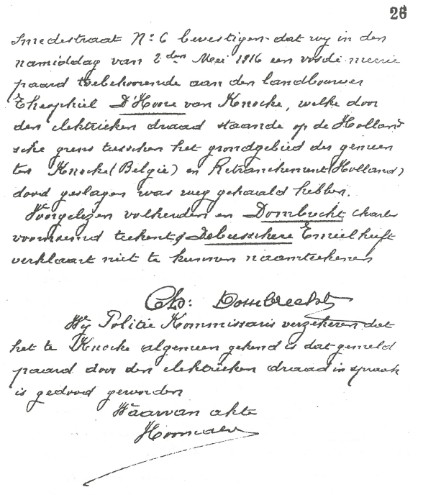 26
Smedestraat No 6 bevestigen dat wy in den
namiddag van 2den Mei 1916 een roode merrie
paard toebehoorende aan den landbouwer
Theophiel D'Hoore van Knocke, welke door
den elektrieken draad staande op de Holland
sche grens tusschen het grondgebied des gemeen
ten Knocke (België) en Retranchement (Holland)
dood geslagen was weg gehaald hebben.
Voorgelezen volherden en Dombrecht Charles
voornoemd teekent & Debusschere Emiel heeft
verklaart niet te kunnen naamteekenen
Ch: Dombrecht
Wy Politie Kommissaris verzekeren dat
het te Knocke algemeen gekend is dat gemeld
paard door den elektrieken draad in spraak
is gedood geworden
Waarvan akte